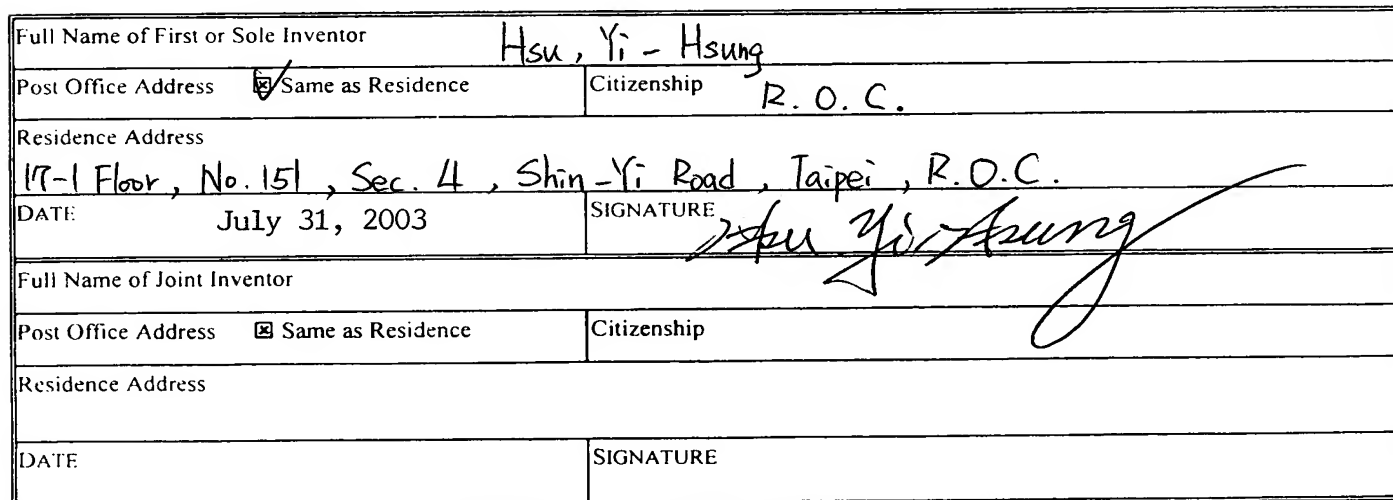 Full Name of First or Sole Inventor Hsu, Yi-Hsung
Post Office Address ☒ Same as Residence Citizenship R.O.C.
Residence Address
17-1 Floor, No. 151, Sec. 4, Shin-Yi Road, Taipei, R.O.C.
DATE July 31, 2003 SIGNATURE Hsu Yi-Hsung
Full Name of Joint Inventor
Post Office Address ☒ Same as Residence Citizenship
Residence Address
DATE SIGNATURE